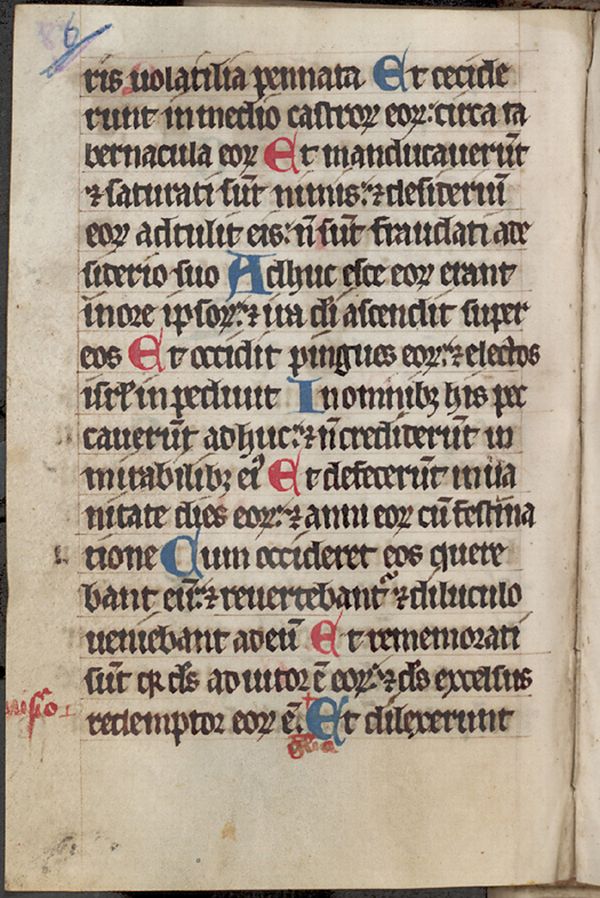 86
ris uolatilia pennata Et cecide
runt in medio castroꝝ eoꝝ: circa ta
bernacula eoꝝ Et manducauerūt
⁊ saturati sūt nimis: ⁊ desideriū
eoꝝ adtulit eis: nō sūt fraudati a de
siderio suo Adhuc esce eoꝝ erant
in ore ipsoꝝ: ⁊ ira di ascendit super
eos Et occidit pingues eoꝝ: ⁊ electos
isrl inpediuit In omnibꝫ his pec
cauerūt adhuc: ⁊ nō crediderūt in
mirabilibꝫ eiꝰ Et defecerūt in ua
nitate dies eoꝝ: ⁊ anni eoꝝ cū festina
tione Cum occideret eos quere
bant eū: ⁊ reuertebantᷣ ⁊ diluculo
ueniebant ad eū Et rememorati
sūt qꝛ ds adiutor ē eoꝝ: ⁊ ds excelsus
redemptor eoꝝ ē. Et dilexerunt